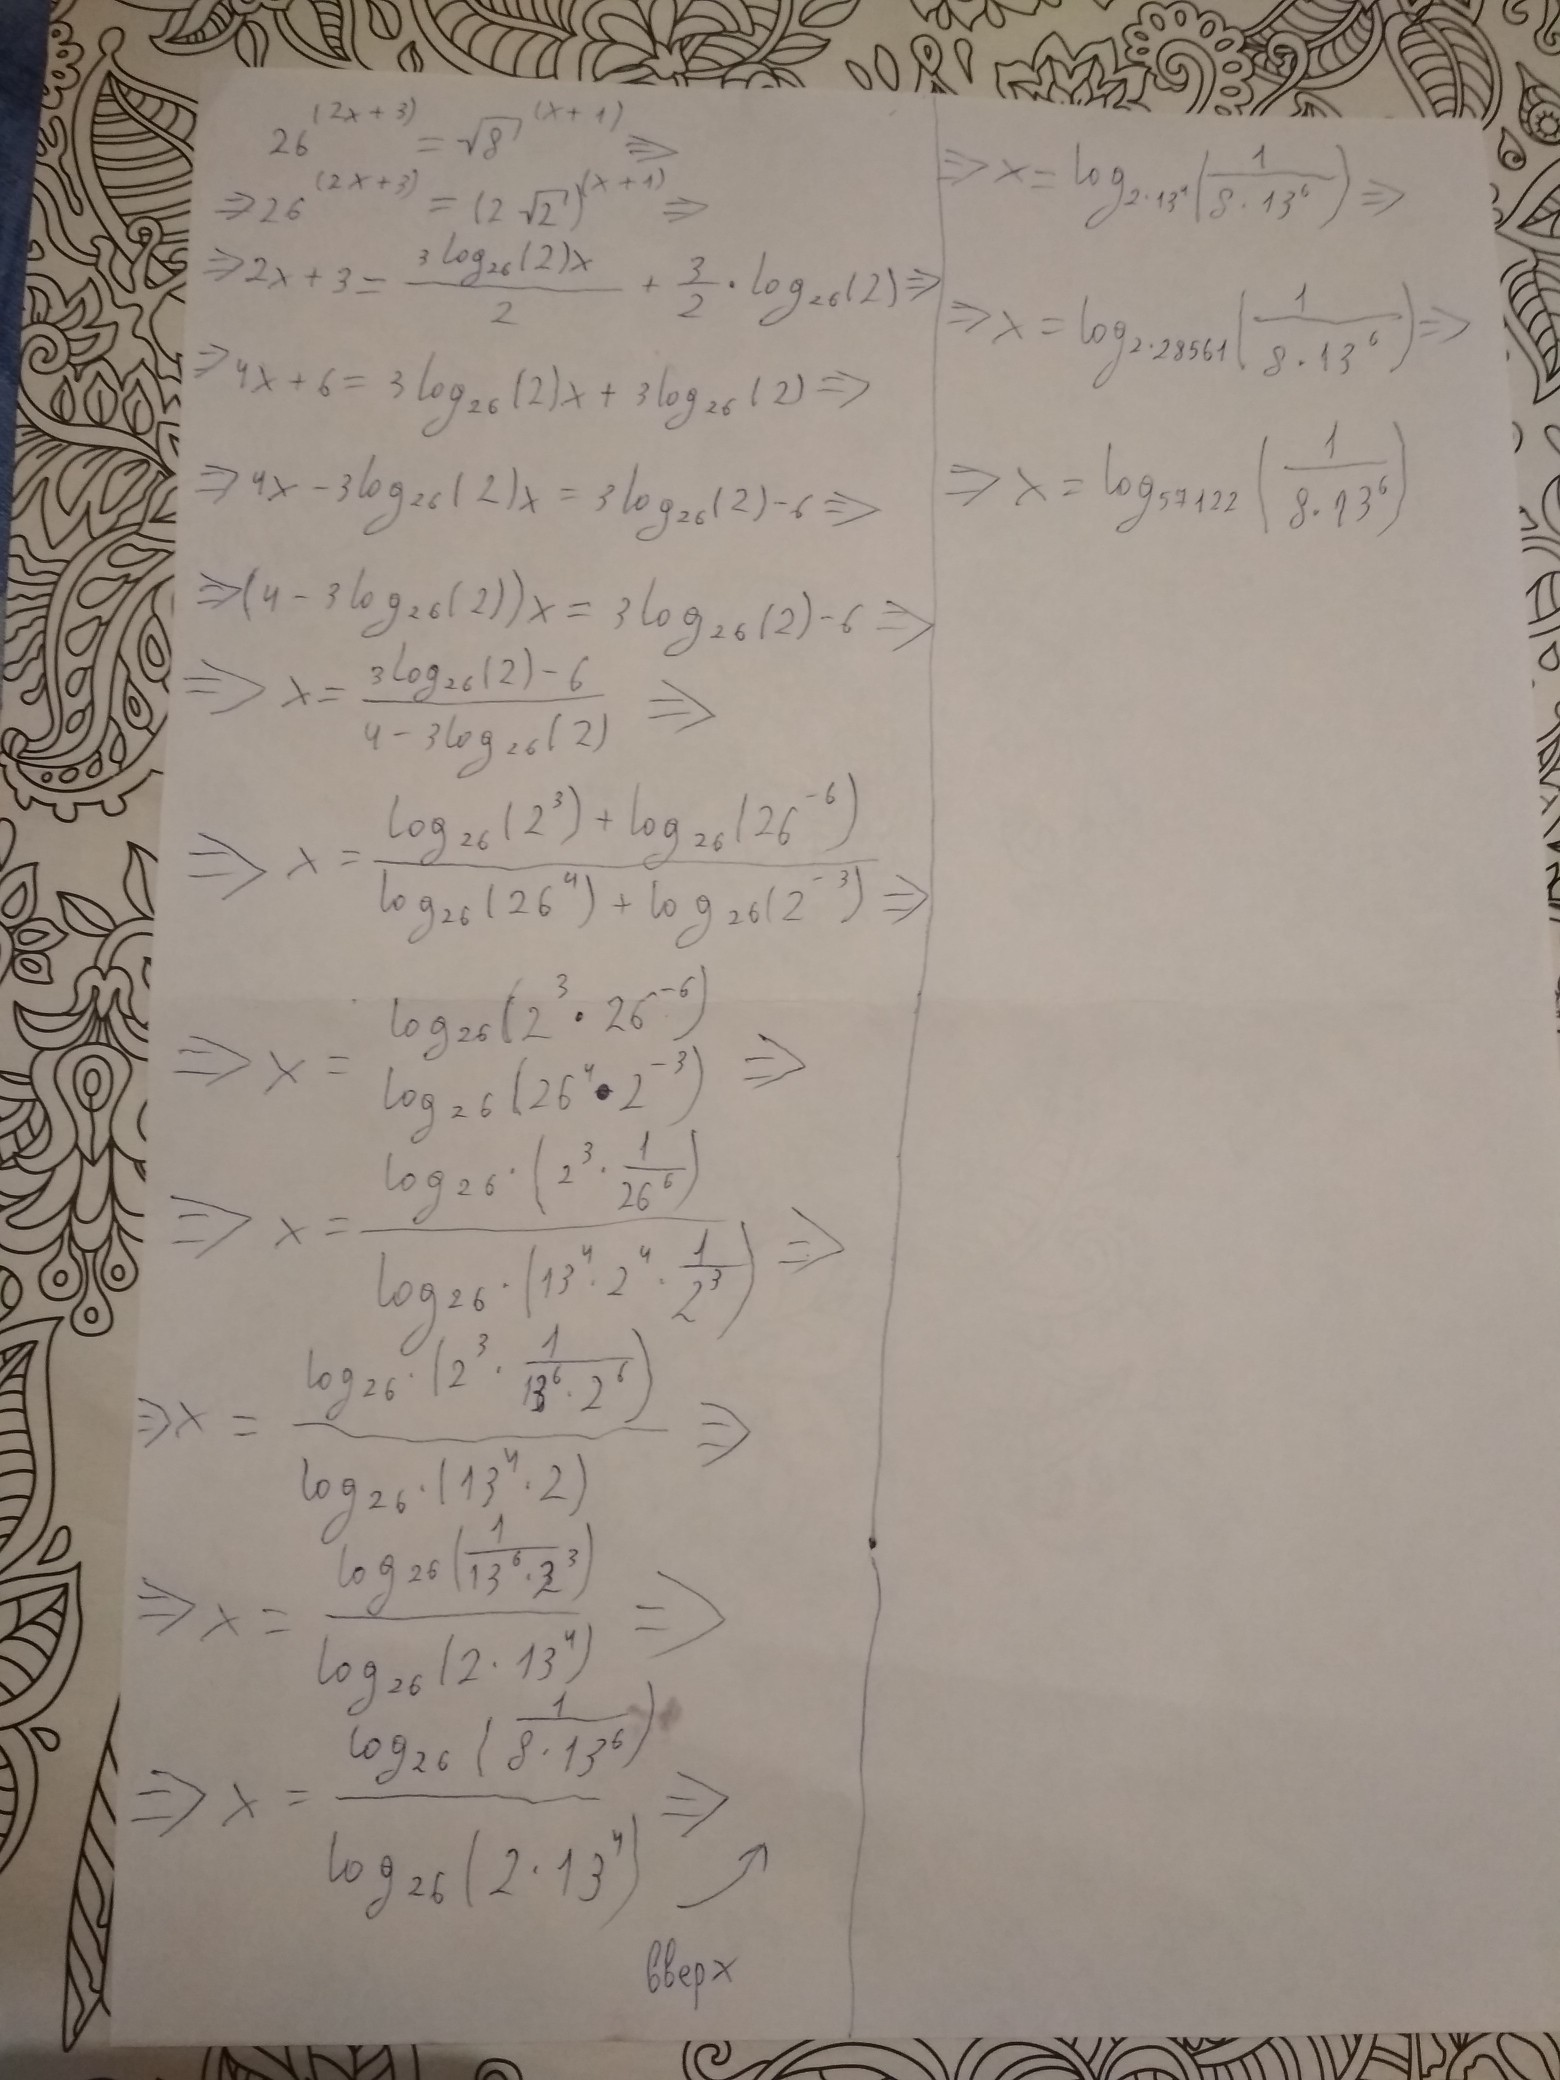 26^(2x+3) = √8^(x+1) ⇒
⇒ 26^(2x+3) = (2√2)^(x+1) ⇒
⇒ 2x+3 = (3log₂₆(2)x)/2 + 3/2 · log₂₆(2) ⇒
⇒ 4x+6 = 3log₂₆(2)x + 3log₂₆(2) ⇒
⇒ 4x - 3log₂₆(2)x = 3log₂₆(2) - 6 ⇒
⇒ (4 - 3log₂₆(2))x = 3log₂₆(2) - 6 ⇒
⇒ x = (3log₂₆(2) - 6)/(4 - 3log₂₆(2)) ⇒
⇒ x = (log₂₆(2³) + log₂₆(26⁻⁶))/(log₂₆(26⁴) + log₂₆(2⁻³)) ⇒
⇒ x = log₂₆(2³ · 26⁻⁶) / log₂₆(26⁴ · 2⁻³) ⇒
⇒ x = (log₂₆ · (2³ · 1/26⁶))/(log₂₆ · (13⁴ · 2⁴ · 1/2³)) ⇒
⇒ x = (log₂₆ · (2³ · 1/(13⁶ · 2⁶)))/(log₂₆ · (13⁴ · 2)) ⇒
⇒ x = (log₂₆(1/(13⁶ · 2³)))/(log₂₆(2 · 13⁴)) ⇒
⇒ x = (log₂₆(1/(8 · 13⁶)))/(log₂₆(2 · 13⁴)) ⇒
вверх
⇒ x = log₂.₁₃⁴(1/(8 · 13⁶)) ⇒
⇒ x = log₂.₂₈₅₆₁(1/(8 · 13⁶)) ⇒
⇒ x = log₅₇₁₂₂(1/(8 · 13⁶))